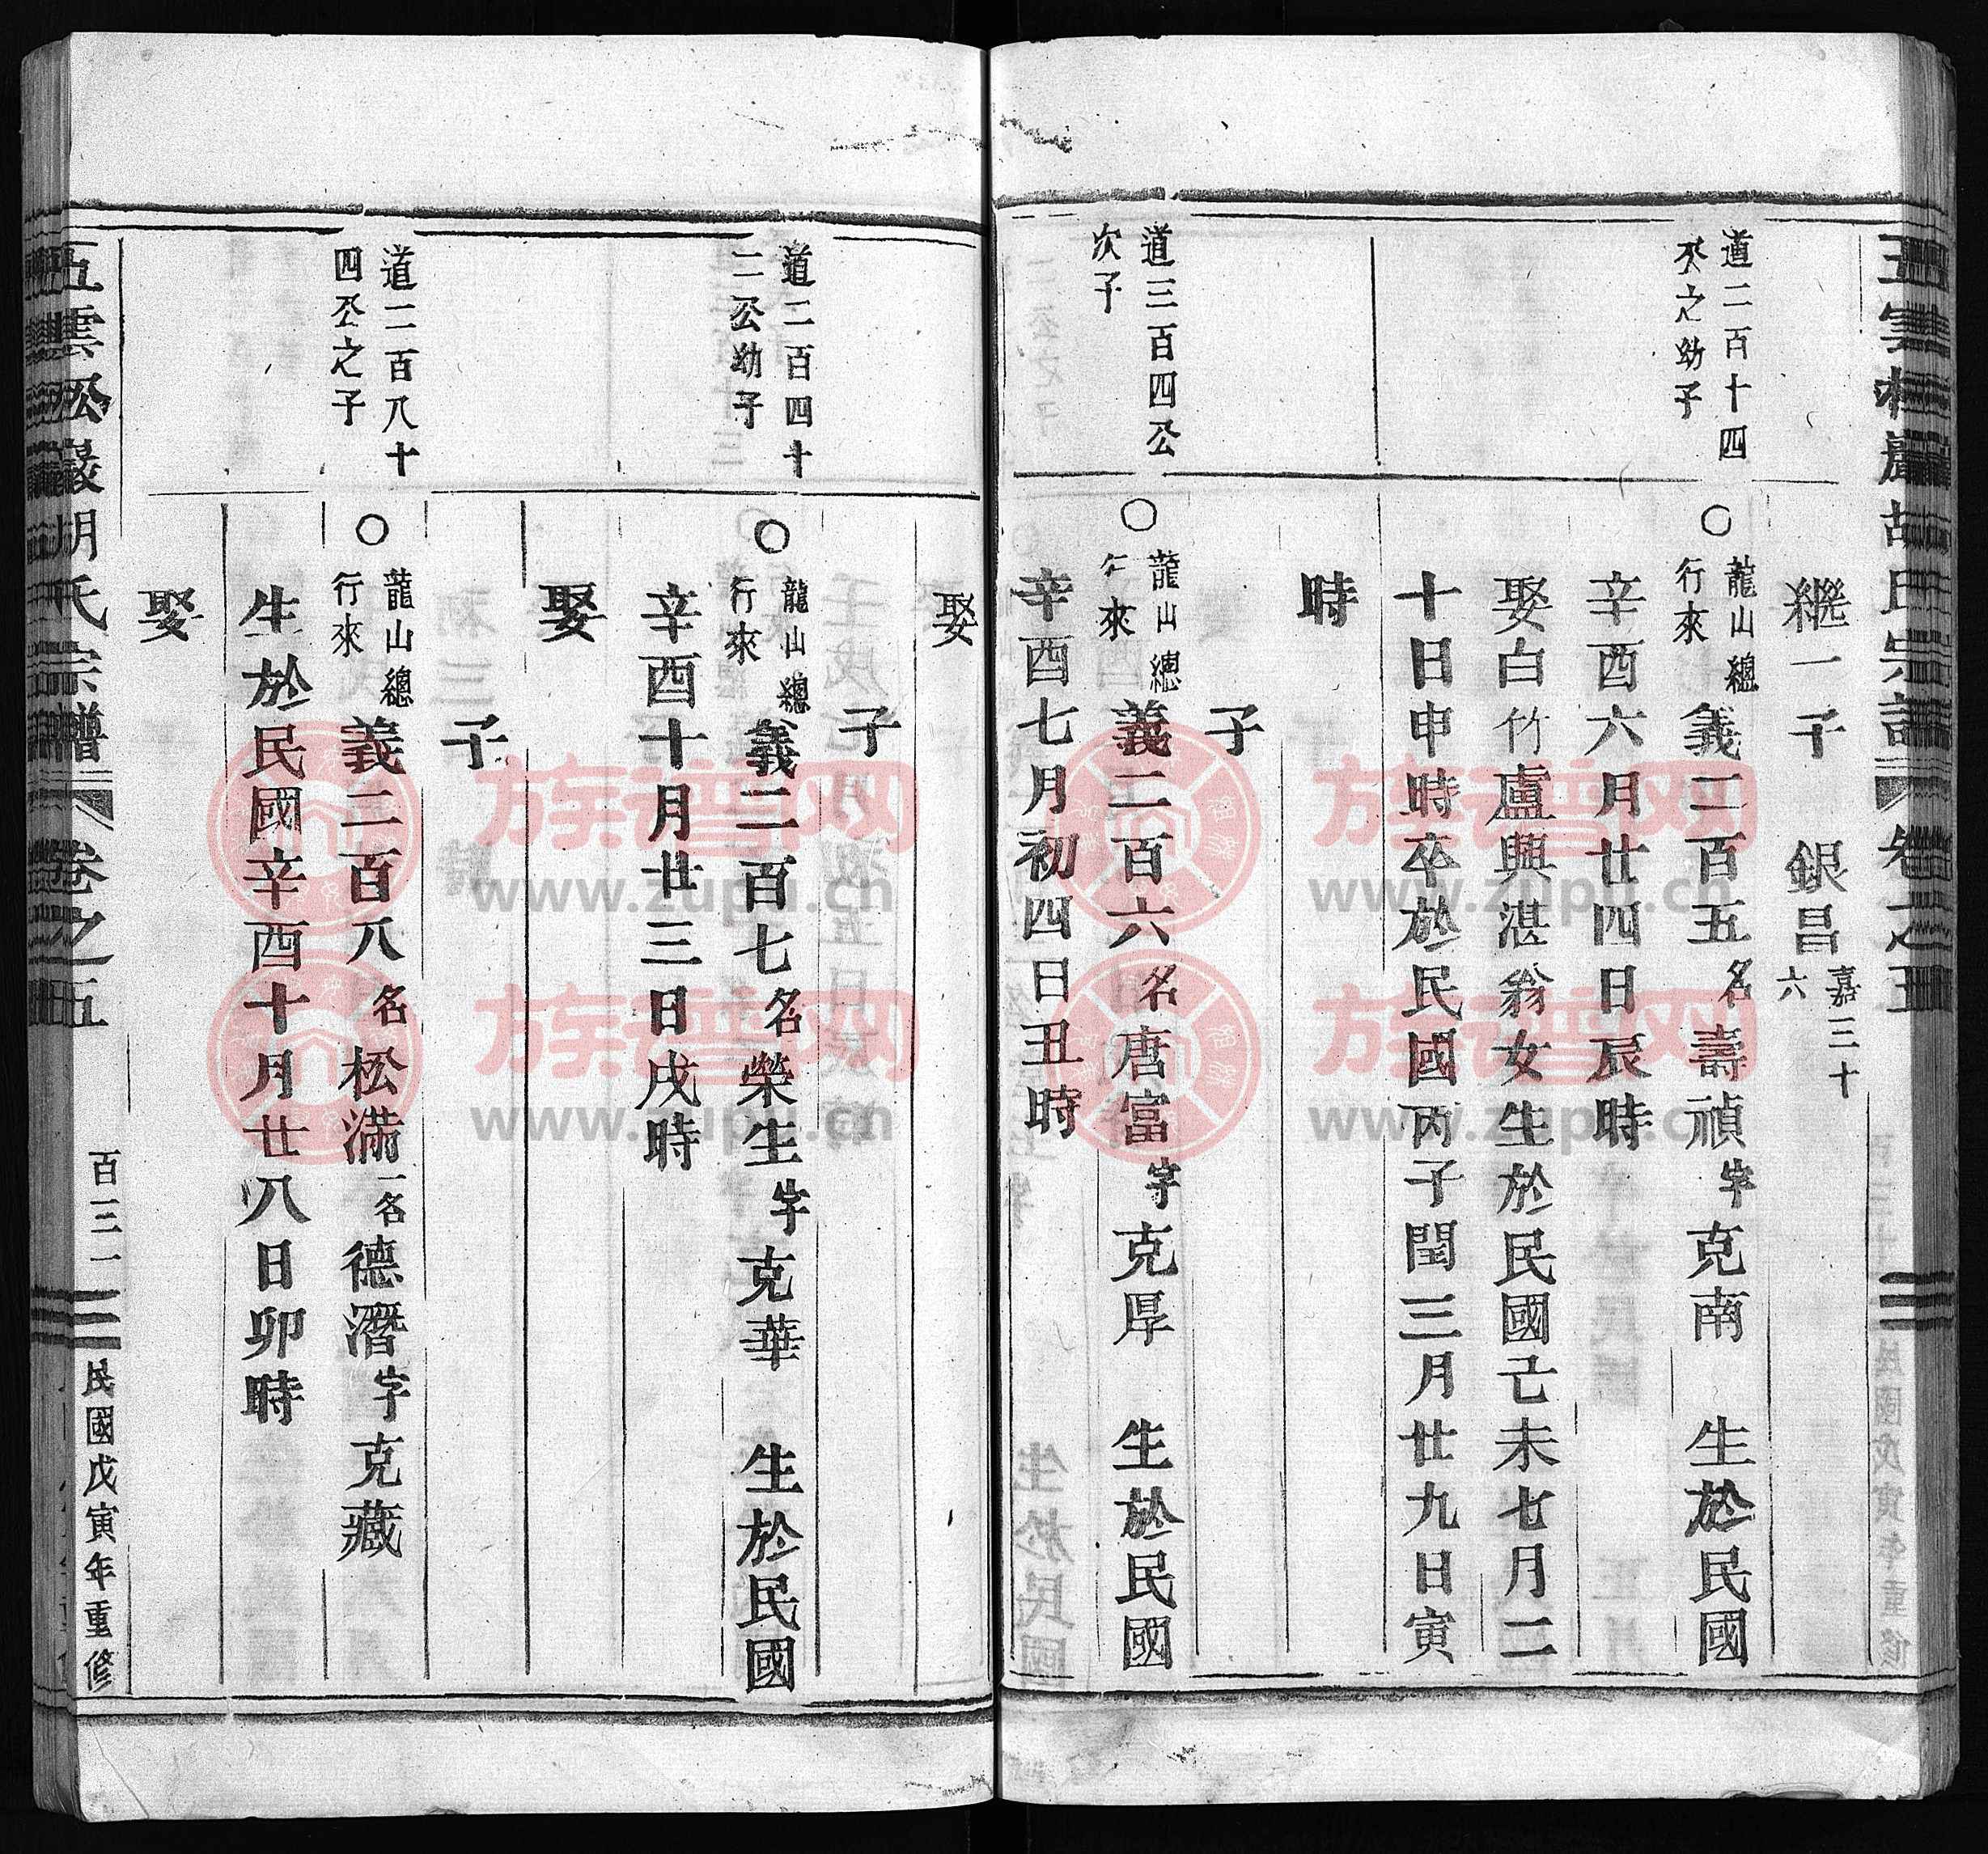 五雲松巖胡氏宗譜 卷之五
繼一子 銀昌 嘉三十
六
道二百十四
公之幼子
○龍山總
行來
義二百五名壽禎字克南 生於民國
辛酉六月廿四日辰時
娶白竹盧興湛翁女生於民國己未七月二
十日申時卒於民國丙子閏三月廿九日寅
時
子
道三百四公
次子
○龍山總
行來
義二百六名唐富字克厚 生於民國
辛酉七月初四日丑時
娶
子
道二百四十
二公幼子
○龍山總
行來
義二百七名榮生字克華 生於民國
辛酉十月廿三日戌時
娶
子
道二百八十
四公之子
○龍山總
行來
義二百八名松滿一名德潛字克藏
生於民國辛酉十月廿八日卯時
娶
五雲松巖胡氏宗譜 卷之五 百三一 民國戊寅年重修
族譜网
www.zupu.cn
族譜网
www.zupu.cn
族譜网
www.zupu.cn
族譜网
www.zupu.cn